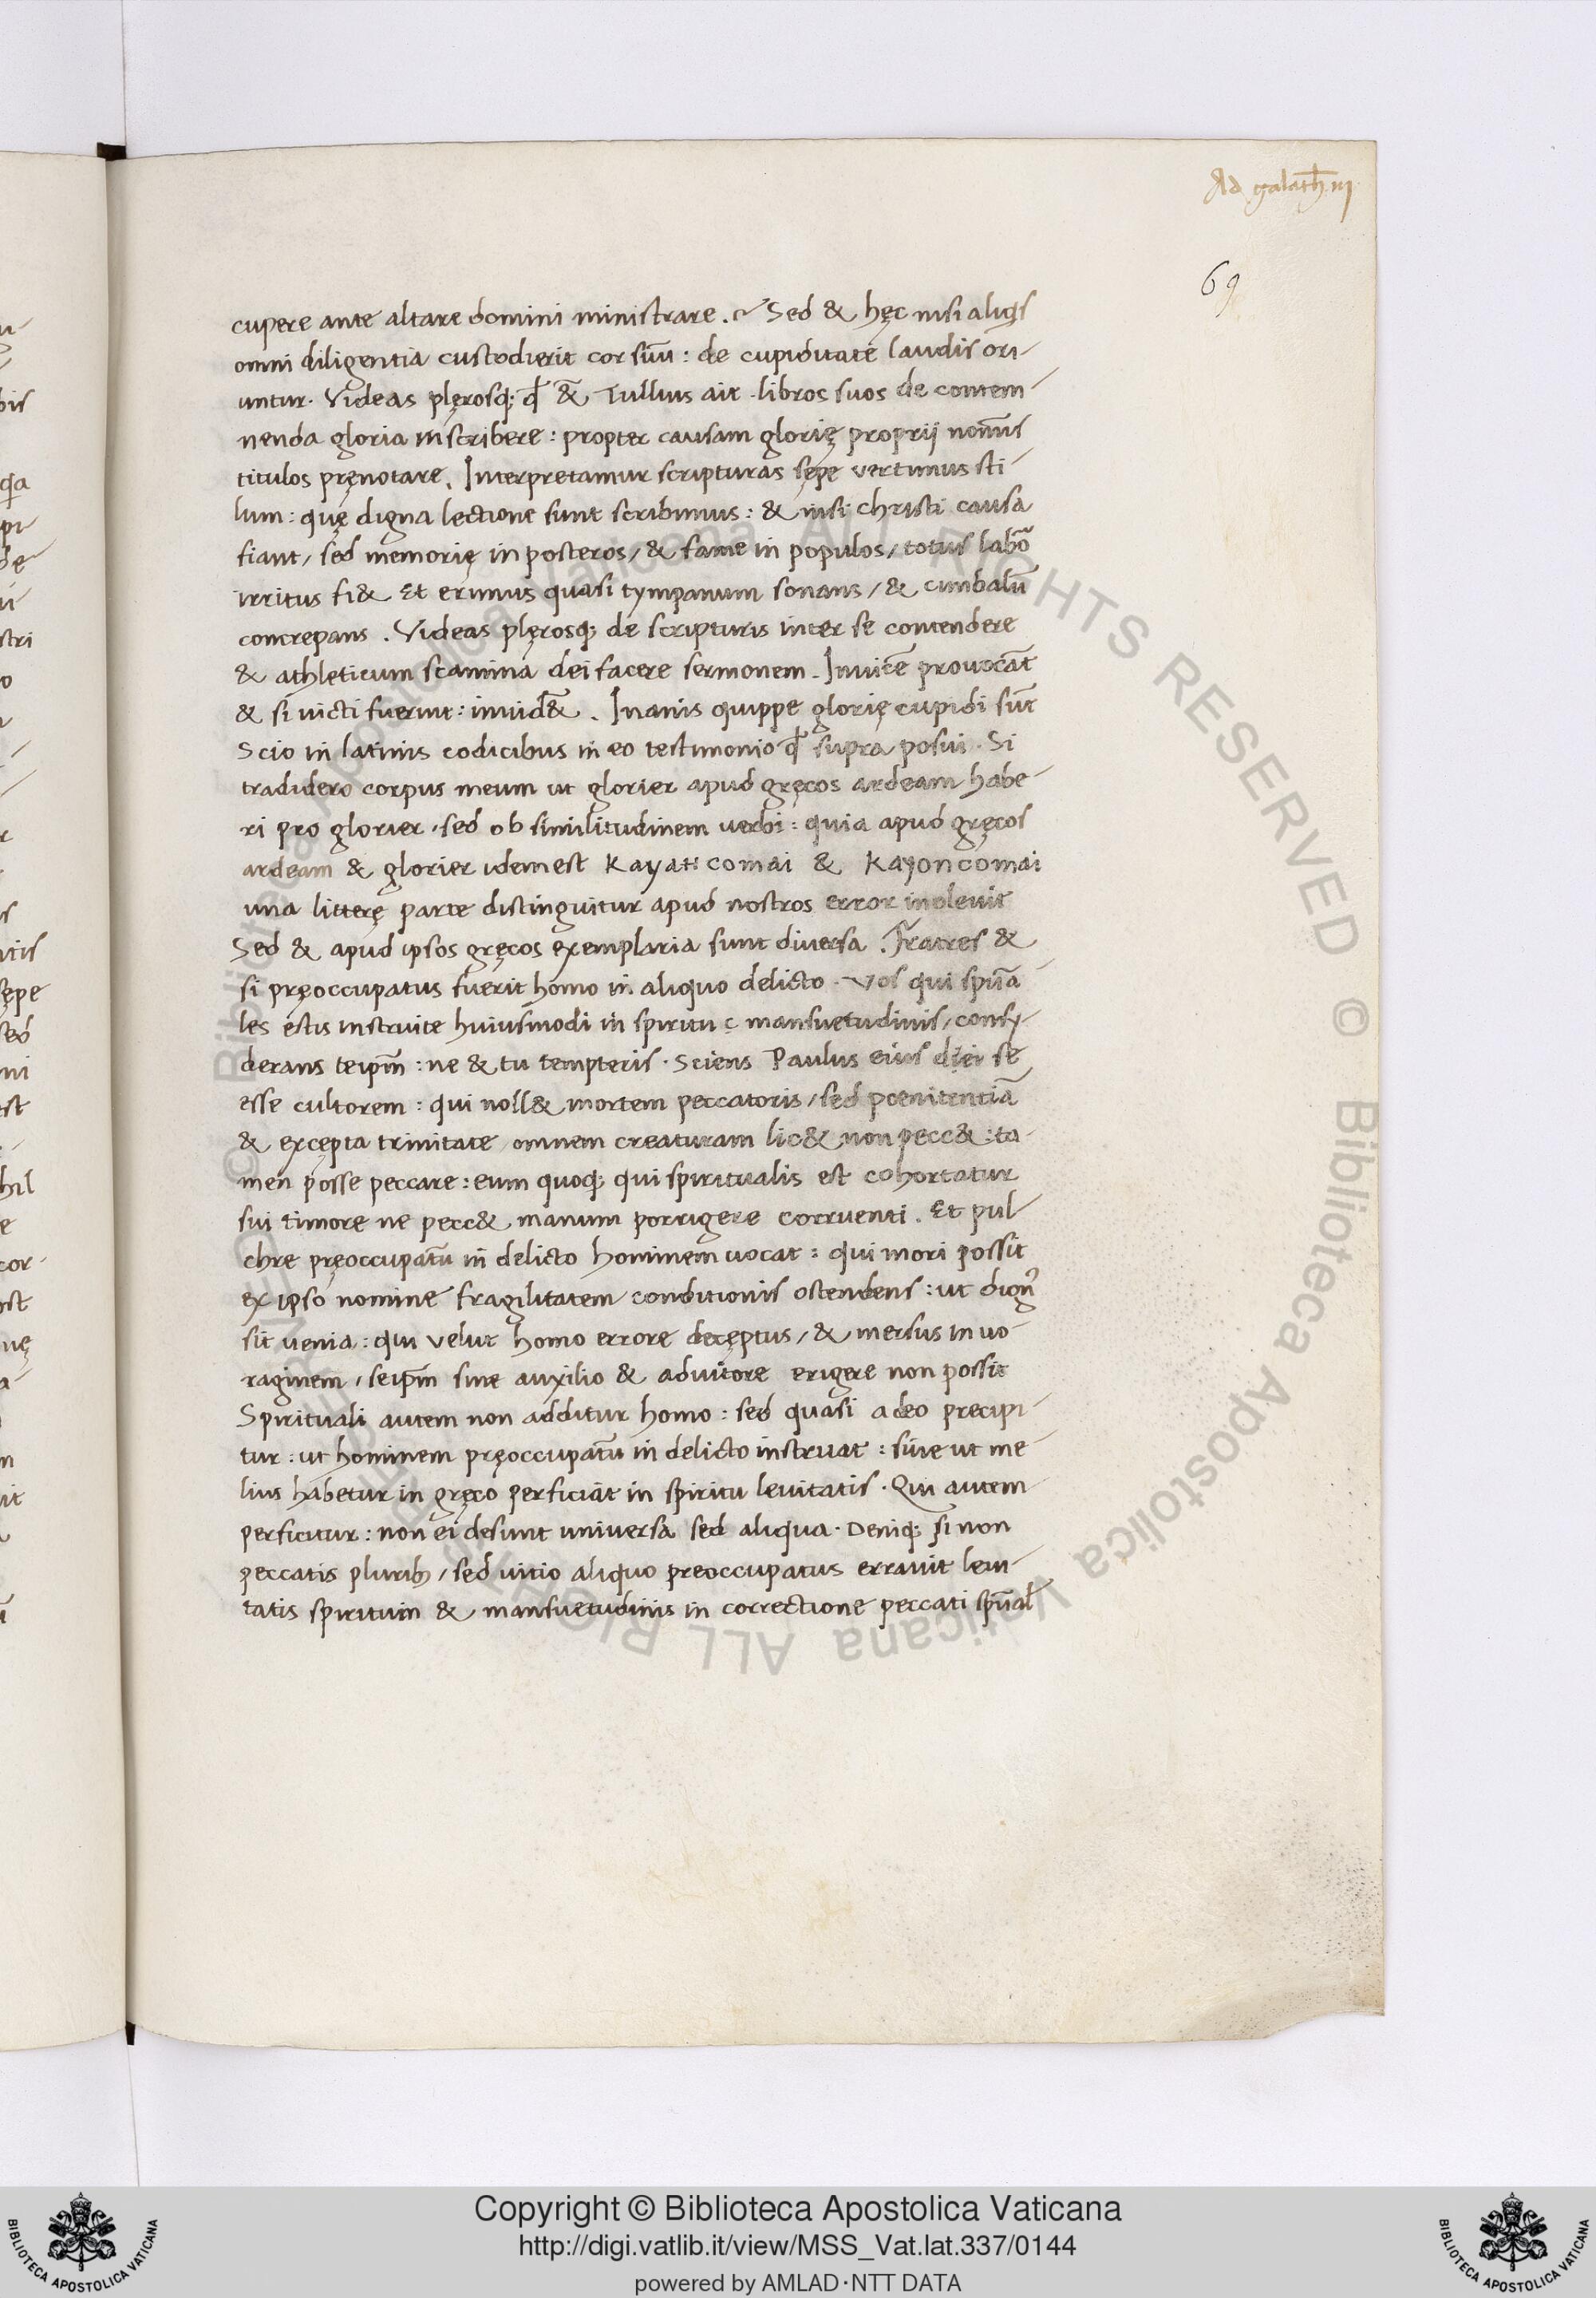 Ad galath̄ .iij.
69
cupere ante altare domini ministrare. Sed & hęc nisi aliqis
omni diligentia custodierit cor suū: de cupiditate laudis ori-
untur. Videas plęrosq; qđ & Tullius ait. libros suos de contem-
nenda gloria inscribere: propter causam glorię proprij nominis
titulos pręnotare. Interpretamur scripturas sępe vertimus sti-
lum: quę digna lectione sunt scribimus: & nisi christi causa
fiant, sed memorię in posteros, & fame in populos, totus labō
irritus fi& Et erimus quasi tympanum sonans, & cimbalū
concrepans. Videas plęrosq; de scripturis inter se contendere
& athleticum scamina dei facere sermonem. Inuicē prouocāt
& si uicti fuerint: inuid&. Inanis quippe glorię cupidi sūt
Scio in latinis codicibus in eo testimonio qđ supra posui. Si
tradidero corpus meum ut glorier apud gręcos ardeam habe-
ri pro glorier, sed ob similitudinem uerbi: quia apud gręcos
ardeam & glorier idem est Kayati comai & Kayoncomai
una litterę parte distinguitur apud nostros error inoleuit
Sed & apud ipsos gręcos exemplaria sunt diuersa. Fratres &
si pręoccupatus fuerit homo in aliquo delicto. Vos qui spūa-
les estis instruite huiusmodi in spiritu ę mansuetudinis, consy-
derans teipm̄: ne & tu tempteris. Sciens Paulus eius dei se
esse cultorem: qui noll& mortem peccatoris, sed poenitentiā
& excepta trinitate omnem creaturam lic& non pecc&: ta-
men posse peccare: eum quoq; qui spiritualis est cohortatur
sui timore ne pecc& manum porrigere corruenti. Et pul-
chre pręoccupatū in delicto hominem uocat: qui mori possit
ex ipso nomine fragilitatem conditionis ostendens: ut dign9
sit uenia: qui velut homo errore deceptus, & mersus in uo-
raginem, seipm̄ sine auxilio & adiutore erigere non possit
Spirituali autem non additur homo: sed quasi a deo precipi-
tur: ut hominem pręoccupatū in delicto instruat: siue ut me-
lius habetur in gręco perficiat in spiritu leuitatis. Qui autem
perficitur: non ei desunt uniuersa sed aliqua. Deniq; si non
peccatis plurib;, sed uitio aliquo preoccupatus errauit leui-
tatis spiritum & mansuetudinis in correctione peccati spūal
Copyright © Biblioteca Apostolica Vaticana
http://digi.vatlib.it/view/MSS_Vat.lat.337/0144
powered by AMLAD·NTT DATA